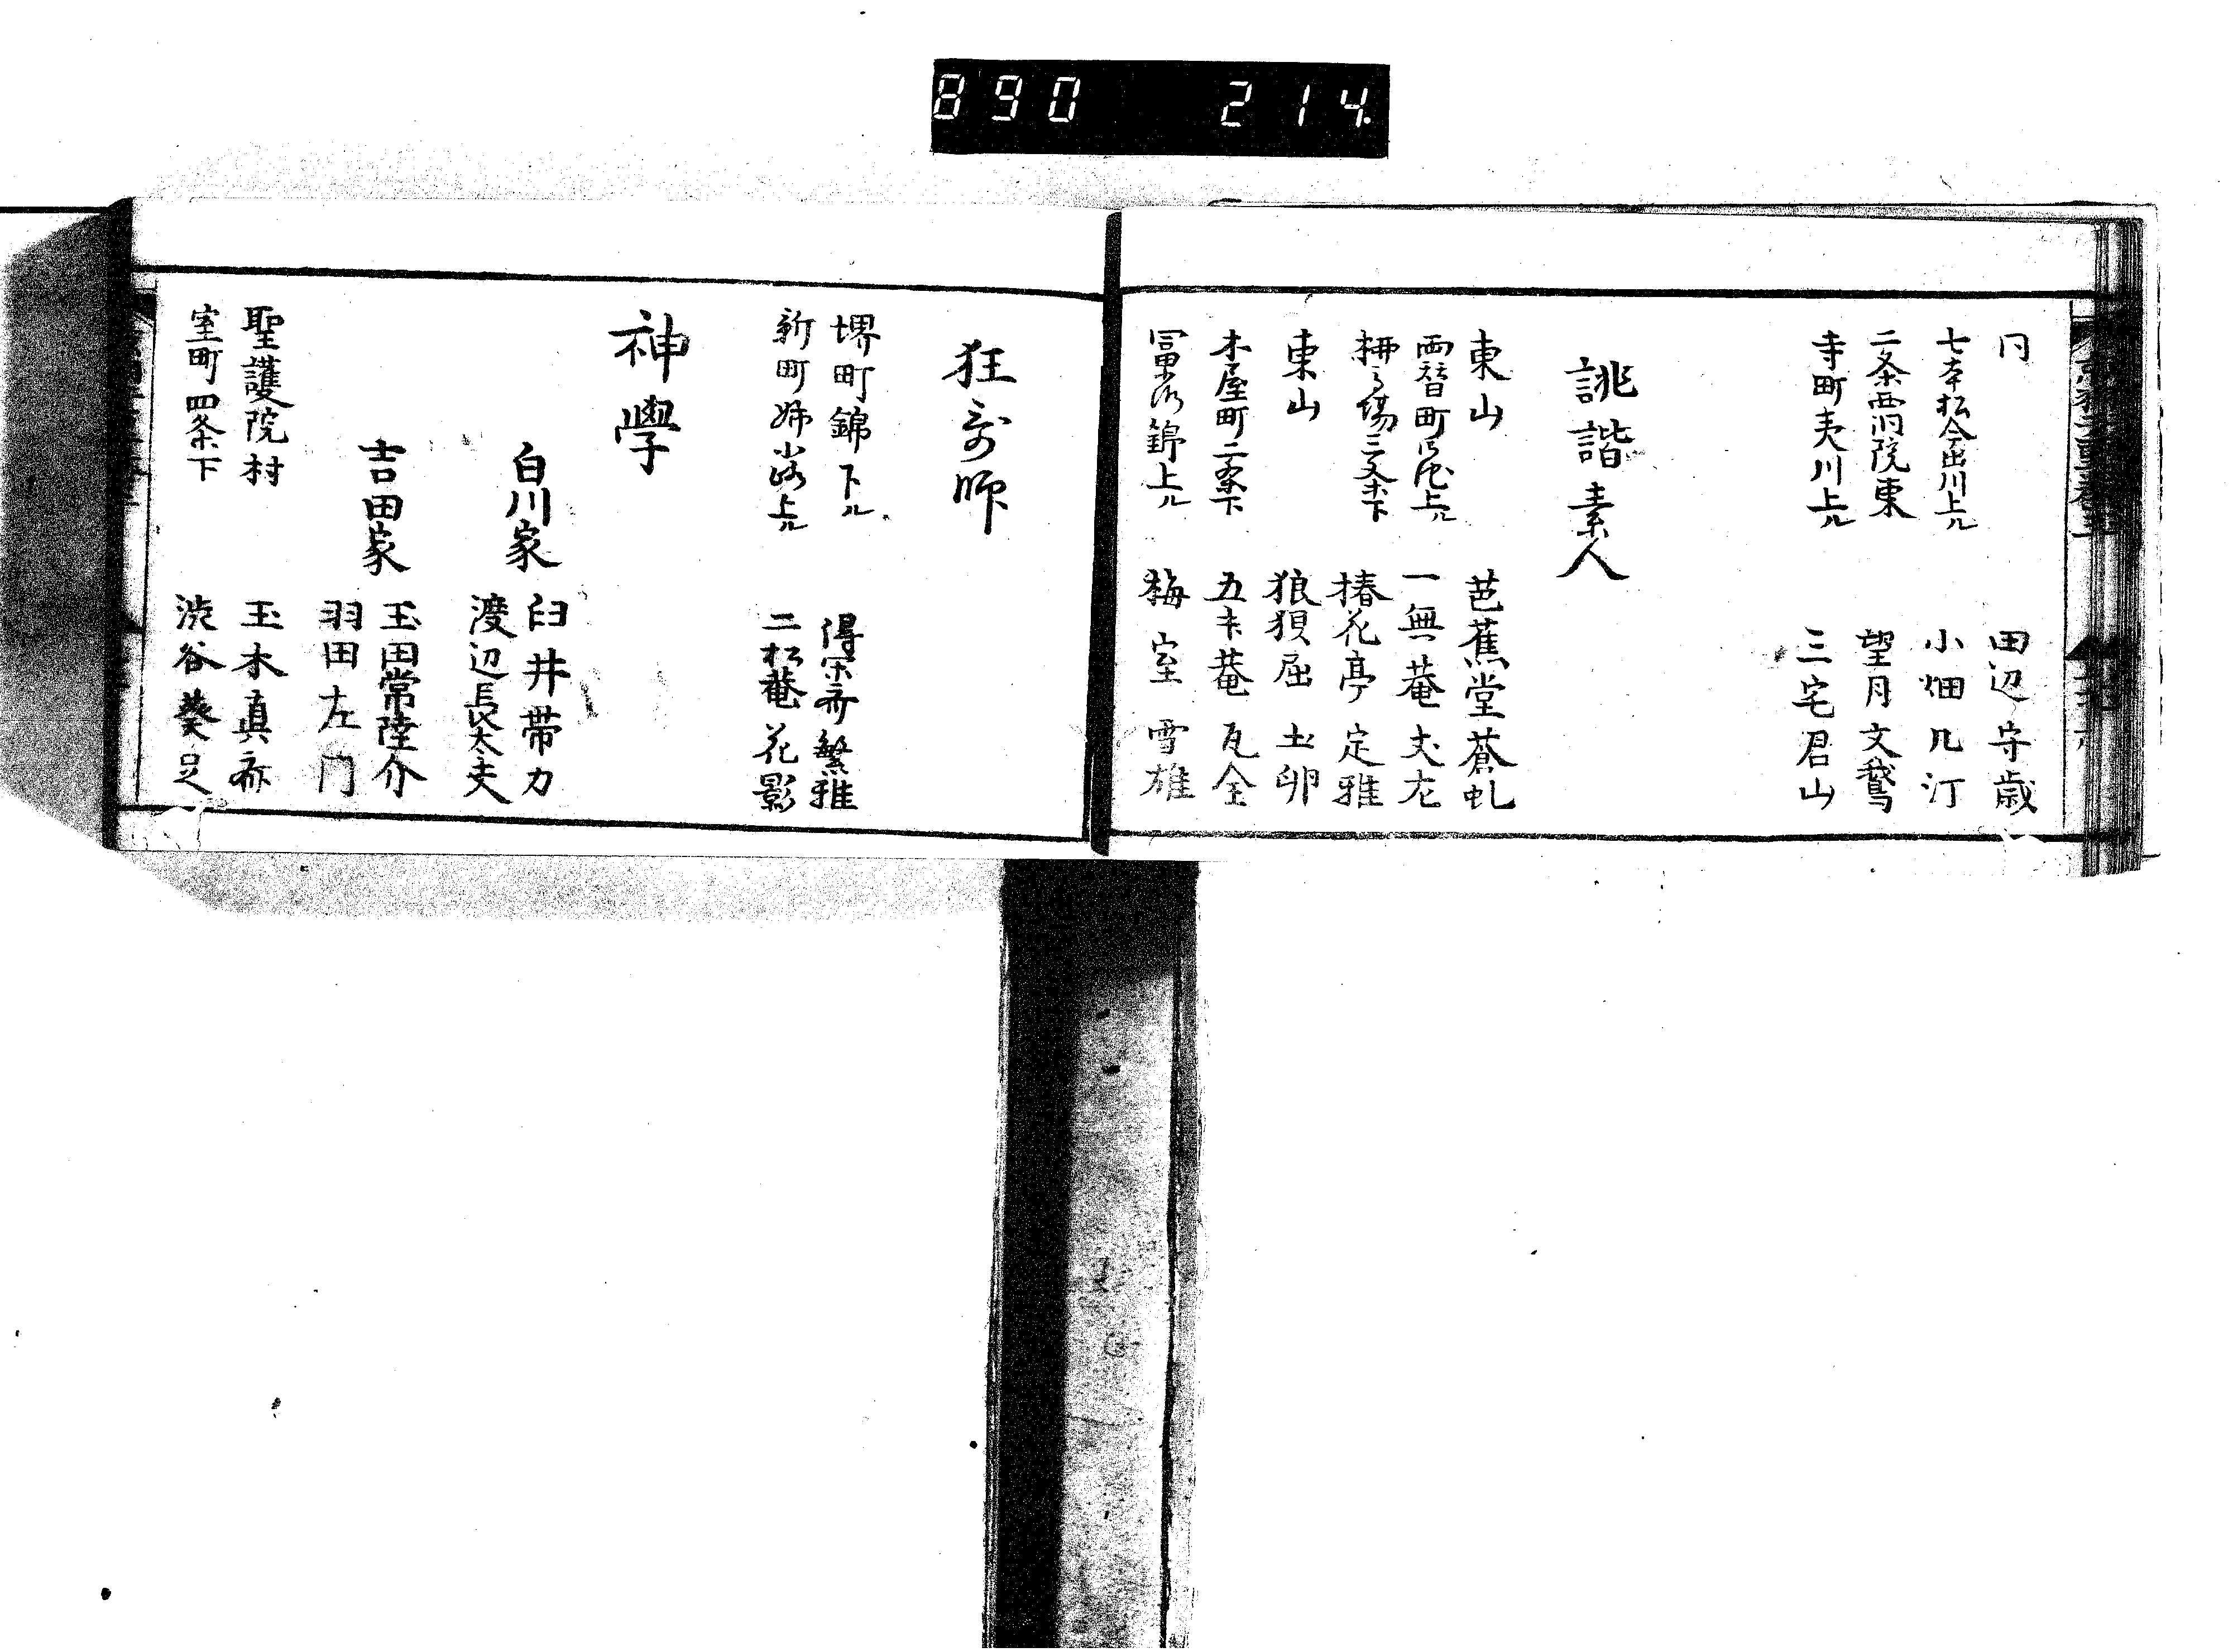 890 214
同 田辺守歳
七本松今出川上ル 小畑几汀
二条西洞院東 望月文鵞
寺町夷川上ル 三宅君山
誹諧素人
東山 芭蕉堂蒼虬
両替町 上ル 一無菴丈左
柳馬場三条下 椿花亭定雅
東山 狼狽屈土卯
木屋町二条下 五木菴瓦全
冨小路錦上ル 梅室雪雄
狂哥師
堺町錦下ル 得宋斎繁雅
新町姉小路上ル 二松菴花影
神學
白川家 臼井帯刀
渡辺長太夫
吉田家 玉田常陸介
羽田左門
聖護院村 玉木真斎
室町四条下 渋谷葵足